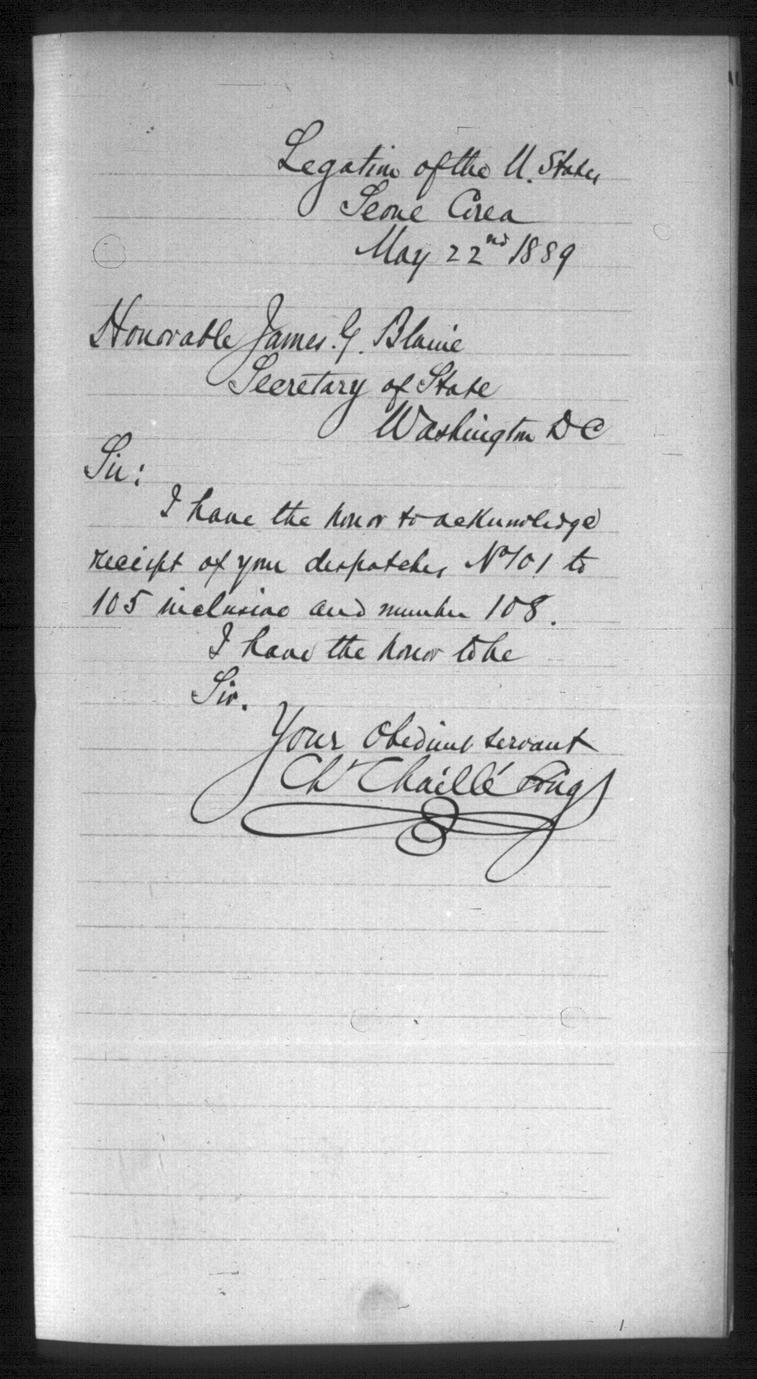 Legation of the U. States
Seoul Corea
May 22nd 1889
Honorable James. G. Blaine
Secretary of State
Washington D C
Sir:
I have the honor to acknowledge
receipt of your despatches No 101 to
105 inclusive and number 108.
I have the honor to be
Sir.
Your obedient servant
Ch. Chaillé Long